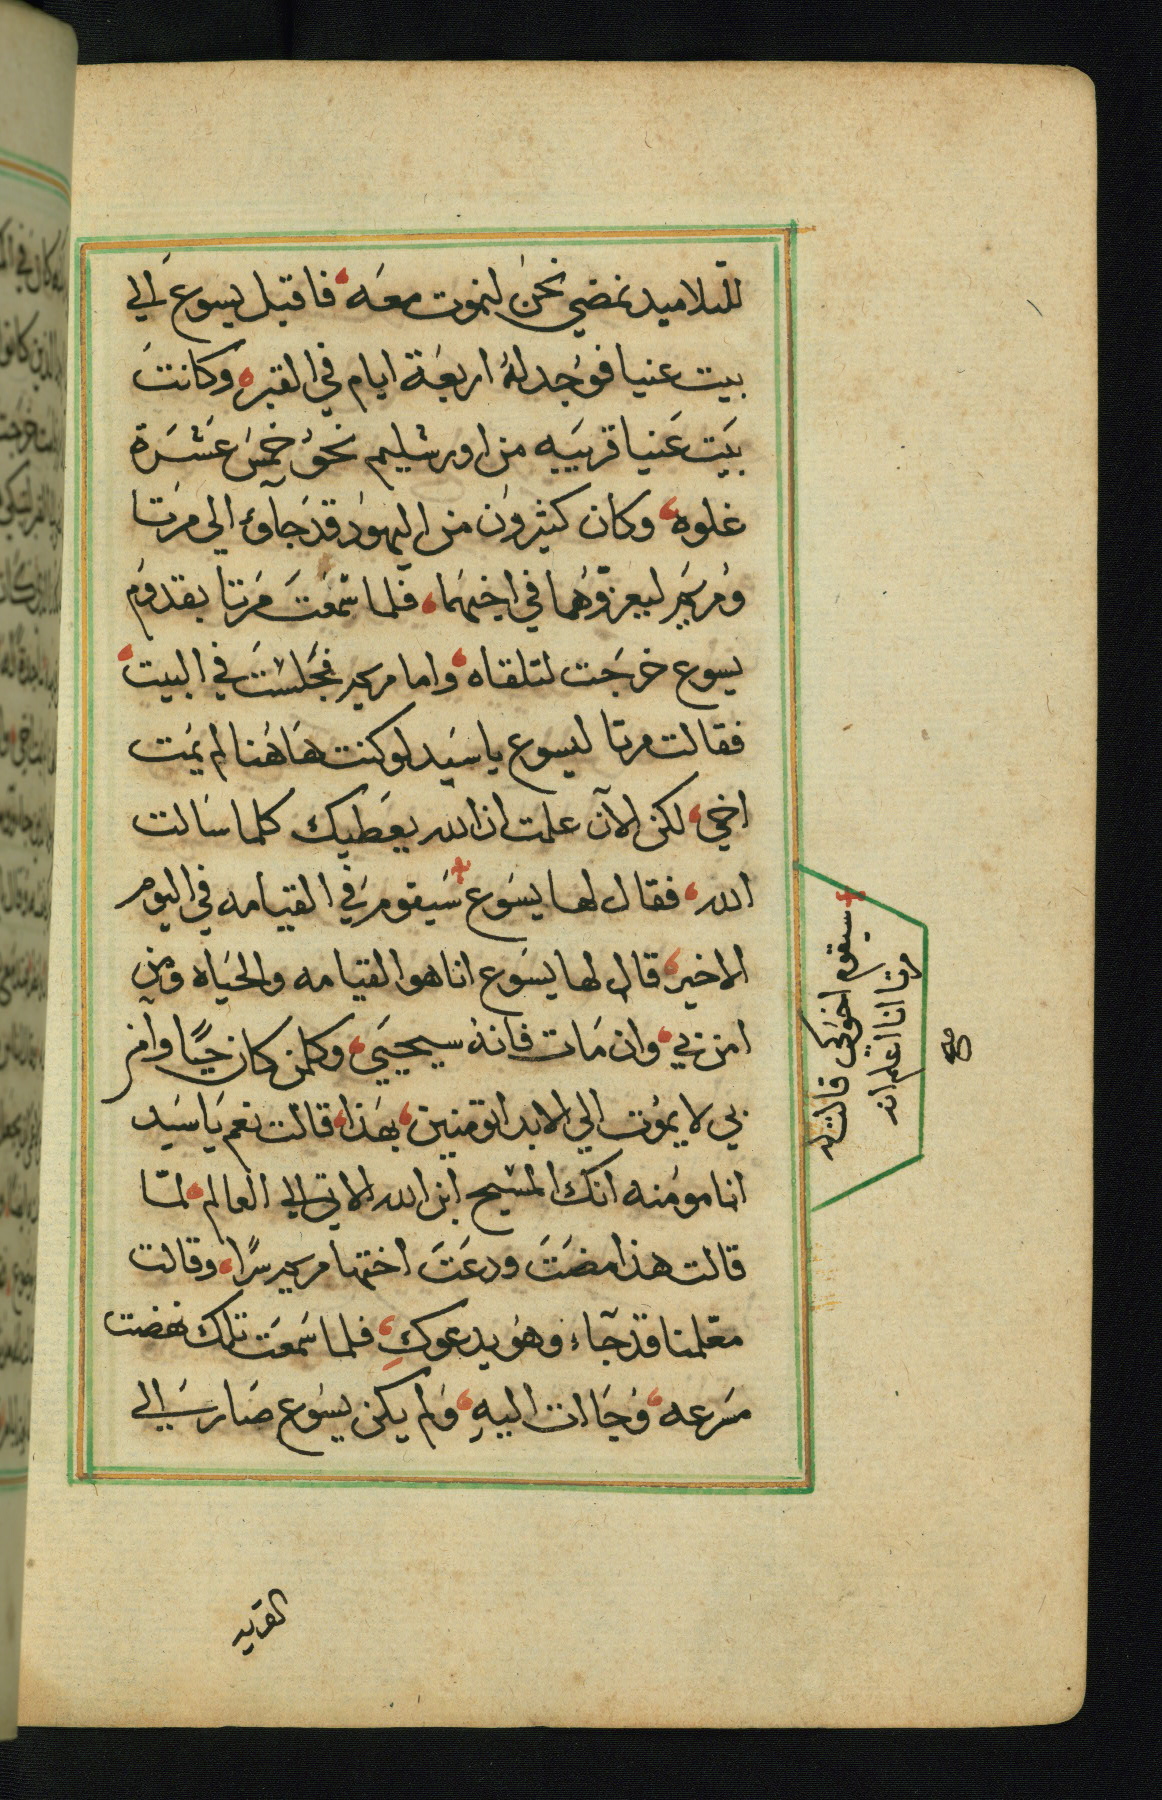 للتلاميذ نمضي نحن لنموت معَه، فاقبل يسوع الي
بيت عنيا فوُجد لهُ اربعَة ايام في القبر، وكانتَ
بيَت عَنيا قريبَه من اورشليم نحوُ خمسَ عَشَرَة
غلوه، وكان كثيرُون من اليهوُد قدَ جآؤ الي مَرتا
ومُريَم ليعزوّهُما في اخيهمَا، فلما سَمعَت مَرتا بقدوُم
يسوع خرجَت لتلقاه، واما مريم فجَلسَت في البيت،
فقالت مرتا ليسوع يا سَيد لو كنت هَاهُنا لم يمُت
اخي، لكن الآن علمت ان الله يعَطيك كلما سَالت
الله، فقال لها يسَوع + سَيقومَ في القيامه في اليوم
الاخير، قال لها يسَوع انا هو القيامه والحيَاه ومن
امن بي، وان مَات فانهُ سيحيَي، وكلمن كان حيًا وآمن
بي لا يموُت الي الابد اتومنين، بهَذا، قالت نعم يَا سَيد
انا مومُنه انك المسَيح ابن الله الاتي الي العالم، لمّا
قالت هذا مضَتَ ودعَتَ اختها مريم سرًا، وقالت
معّلمنا قدَ جآء وهوُ يدعوكِ، فلما سَمعَت تلك نهضت
مسَرعه، وُجَاات اليهِ، وَلم يكن يسَوع صَار الي
+ سيقوم اخوكي قالت له
مرتا انا اعلم انه
صح
القريه